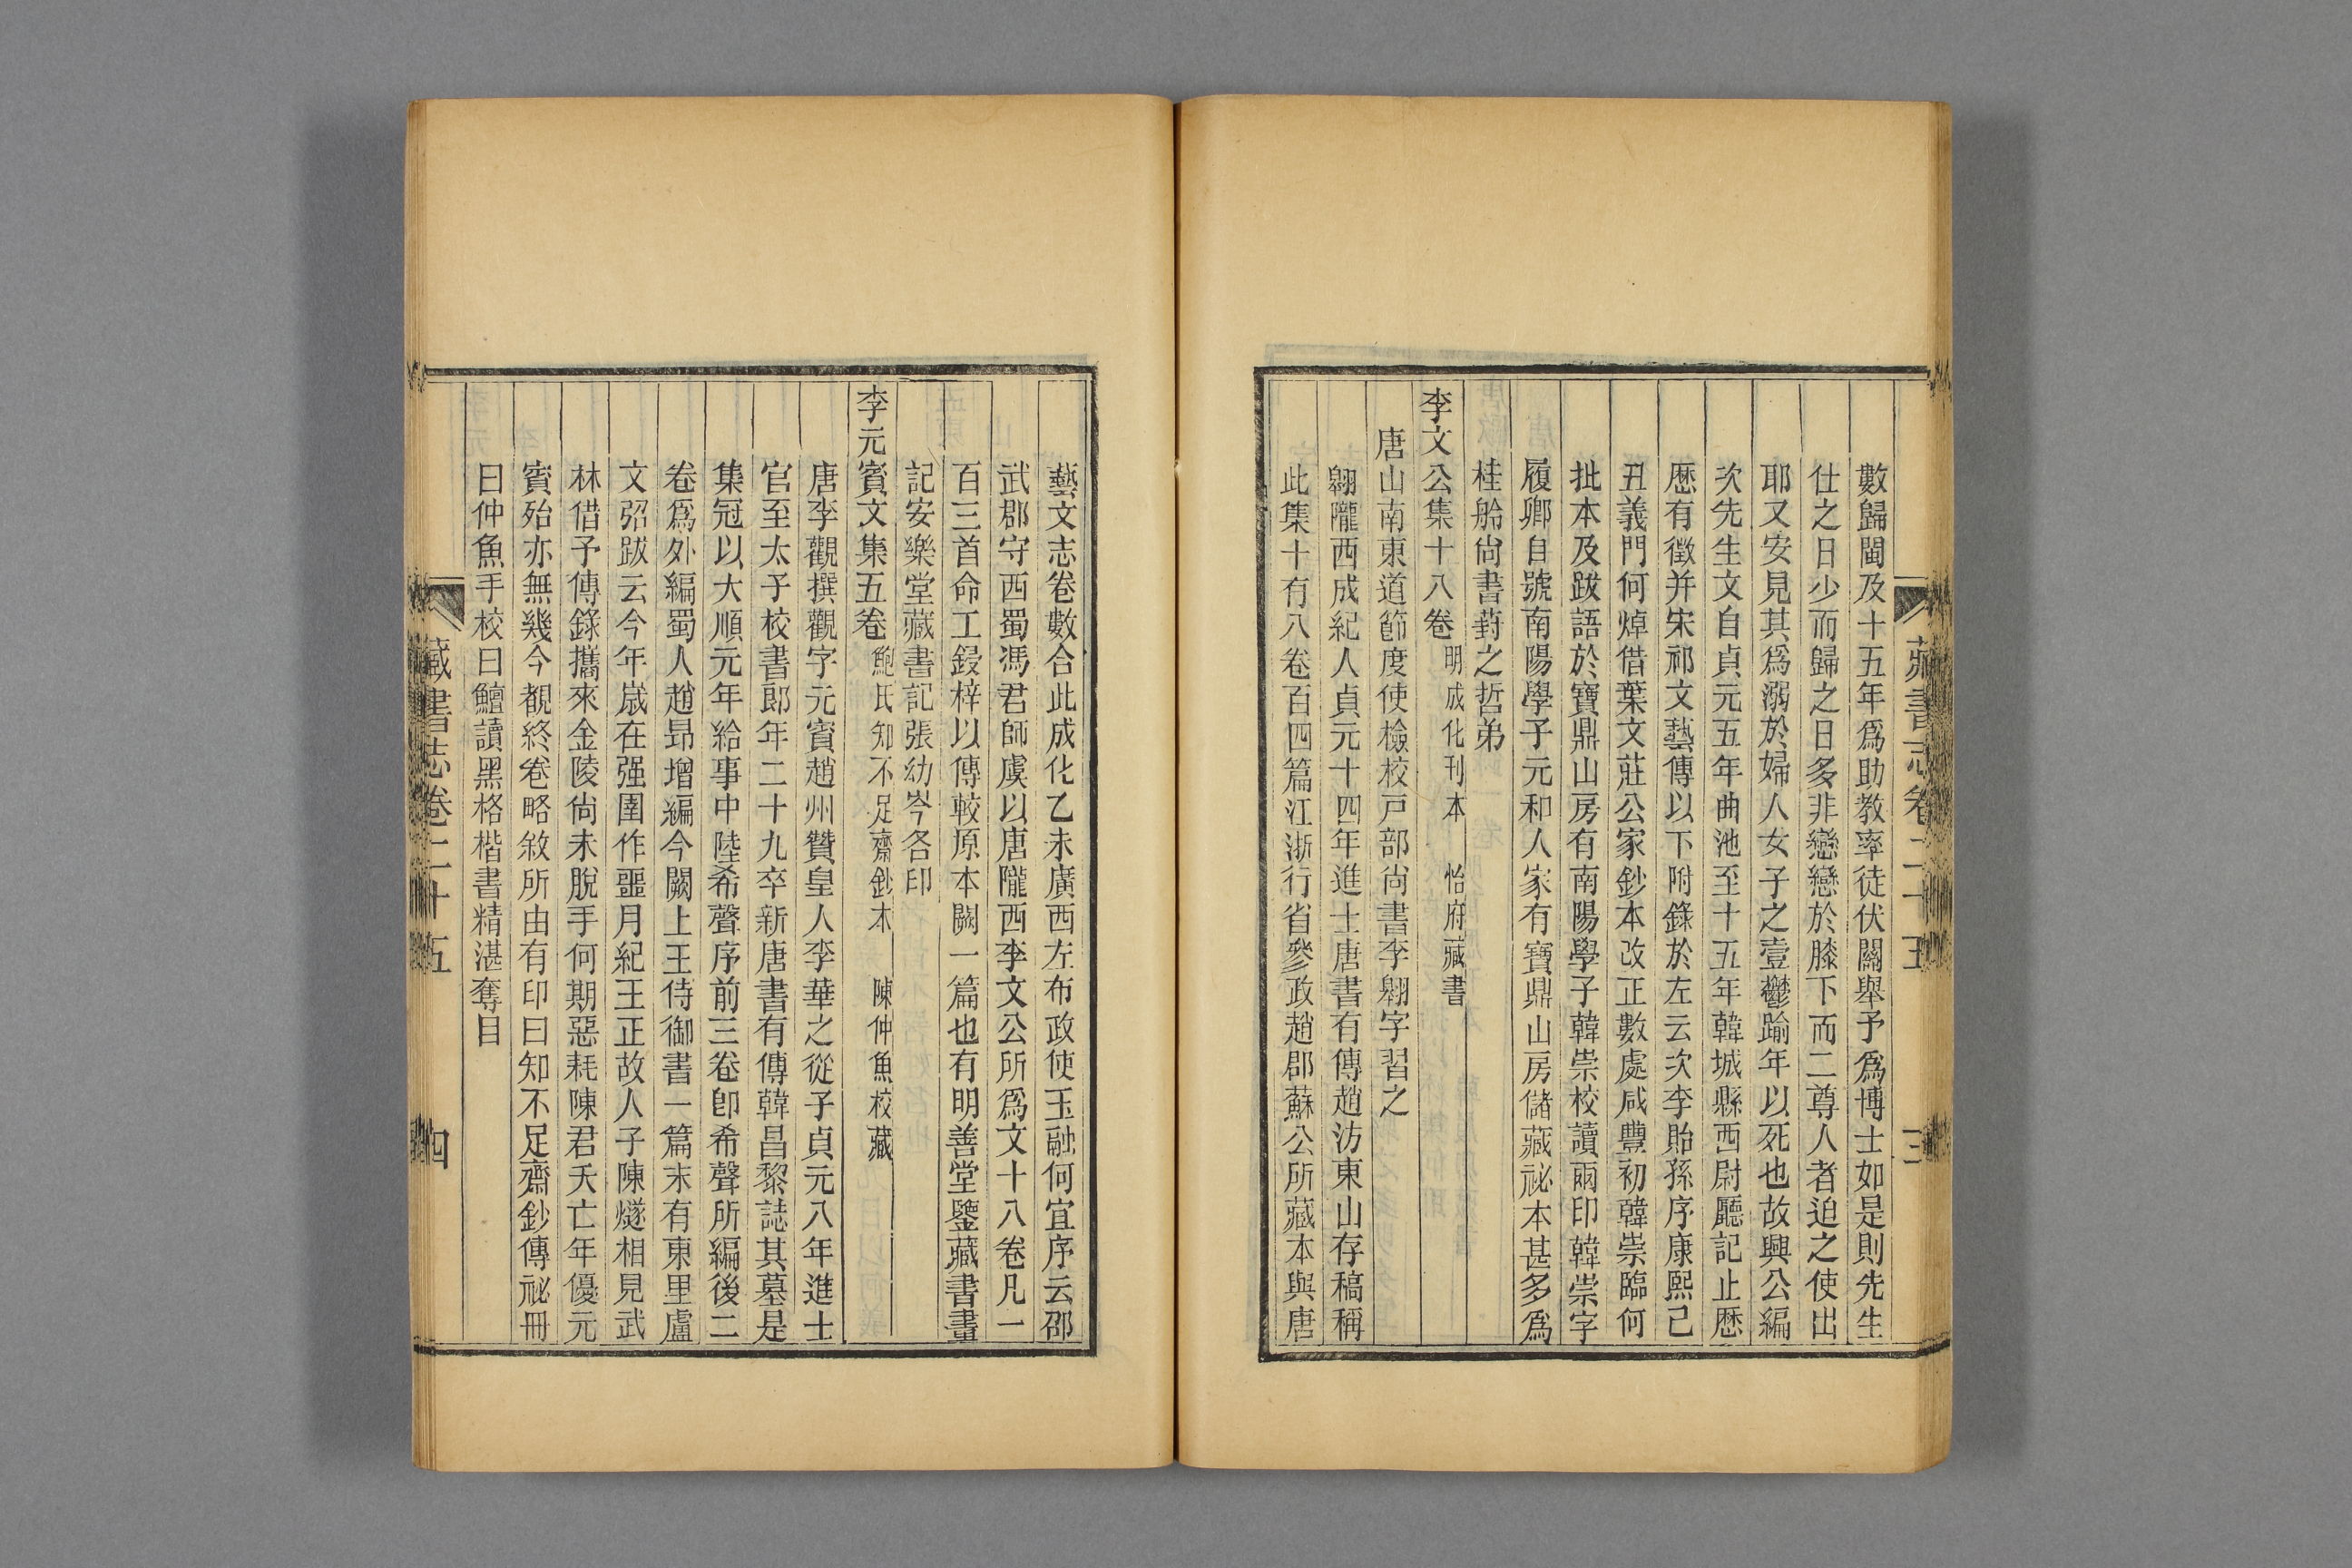 數歸閩及十五年爲助教率徒伏闕舉予爲博士如是則先生
仕之日少而歸之日多非戀戀於膝下而二尊人者迫之使出
耶又安見其爲溺於婦人女子之壹鬱踰年以死也故興公編
次先生文自貞元五年曲池至十五年韓城縣西尉廳記止歷
歷有徵并宋祁文藝傳以下附錄於左云次李貽孫序康熙己
丑義門何焯借葉文莊公家鈔本改正數處咸豐初韓崇臨何
批本及跋語於寶鼎山房有南陽學子韓崇校讀兩印韓崇字
履卿自號南陽學子元和人家有寶鼎山房儲藏祕本甚多爲
桂舲尙書葑之哲弟
李文公集十八卷 明成化刊本 怡府藏書
唐山南東道節度使檢校戸部尙書李翱字習之
翱隴西成紀人貞元十四年進士唐書有傳趙汸東山存稿稱
此集十有八卷百四篇江浙行省參政趙郡蘇公所藏本與唐
藏書志卷二十五 三
藝文志卷數合此成化乙未廣西左布政使玉融何宜序云邵
武郡守西蜀馮君師虞以唐隴西李文公所爲文十八卷凡一
百三首命工鋟梓以傳較原本闕一篇也有明善堂鑒藏書畫
記安樂堂藏書記張幼岑各印
李元賓文集五卷 鮑氏知不足齋鈔本 陳仲魚校藏
唐李觀撰觀字元賓趙州贊皇人李華之從子貞元八年進士
官至太子校書郎年二十九卒新唐書有傳韓昌黎誌其墓是
集冠以大順元年給事中陸希聲序前三卷卽希聲所編後二
卷爲外編蜀人趙昻增編今闕上王侍御書一篇末有東里盧
文弨跋云今年歲在强圉作噩月紀王正故人子陳燧相見武
林借予傳錄攜來金陵尙未脫手何期惡耗陳君夭亡年優元
賓殆亦無幾今覩終卷略敘所由有印曰知不足齋鈔傳祕冊
曰仲魚手校曰鱣讀黑格楷書精湛奪目
藏書志卷二十五 四